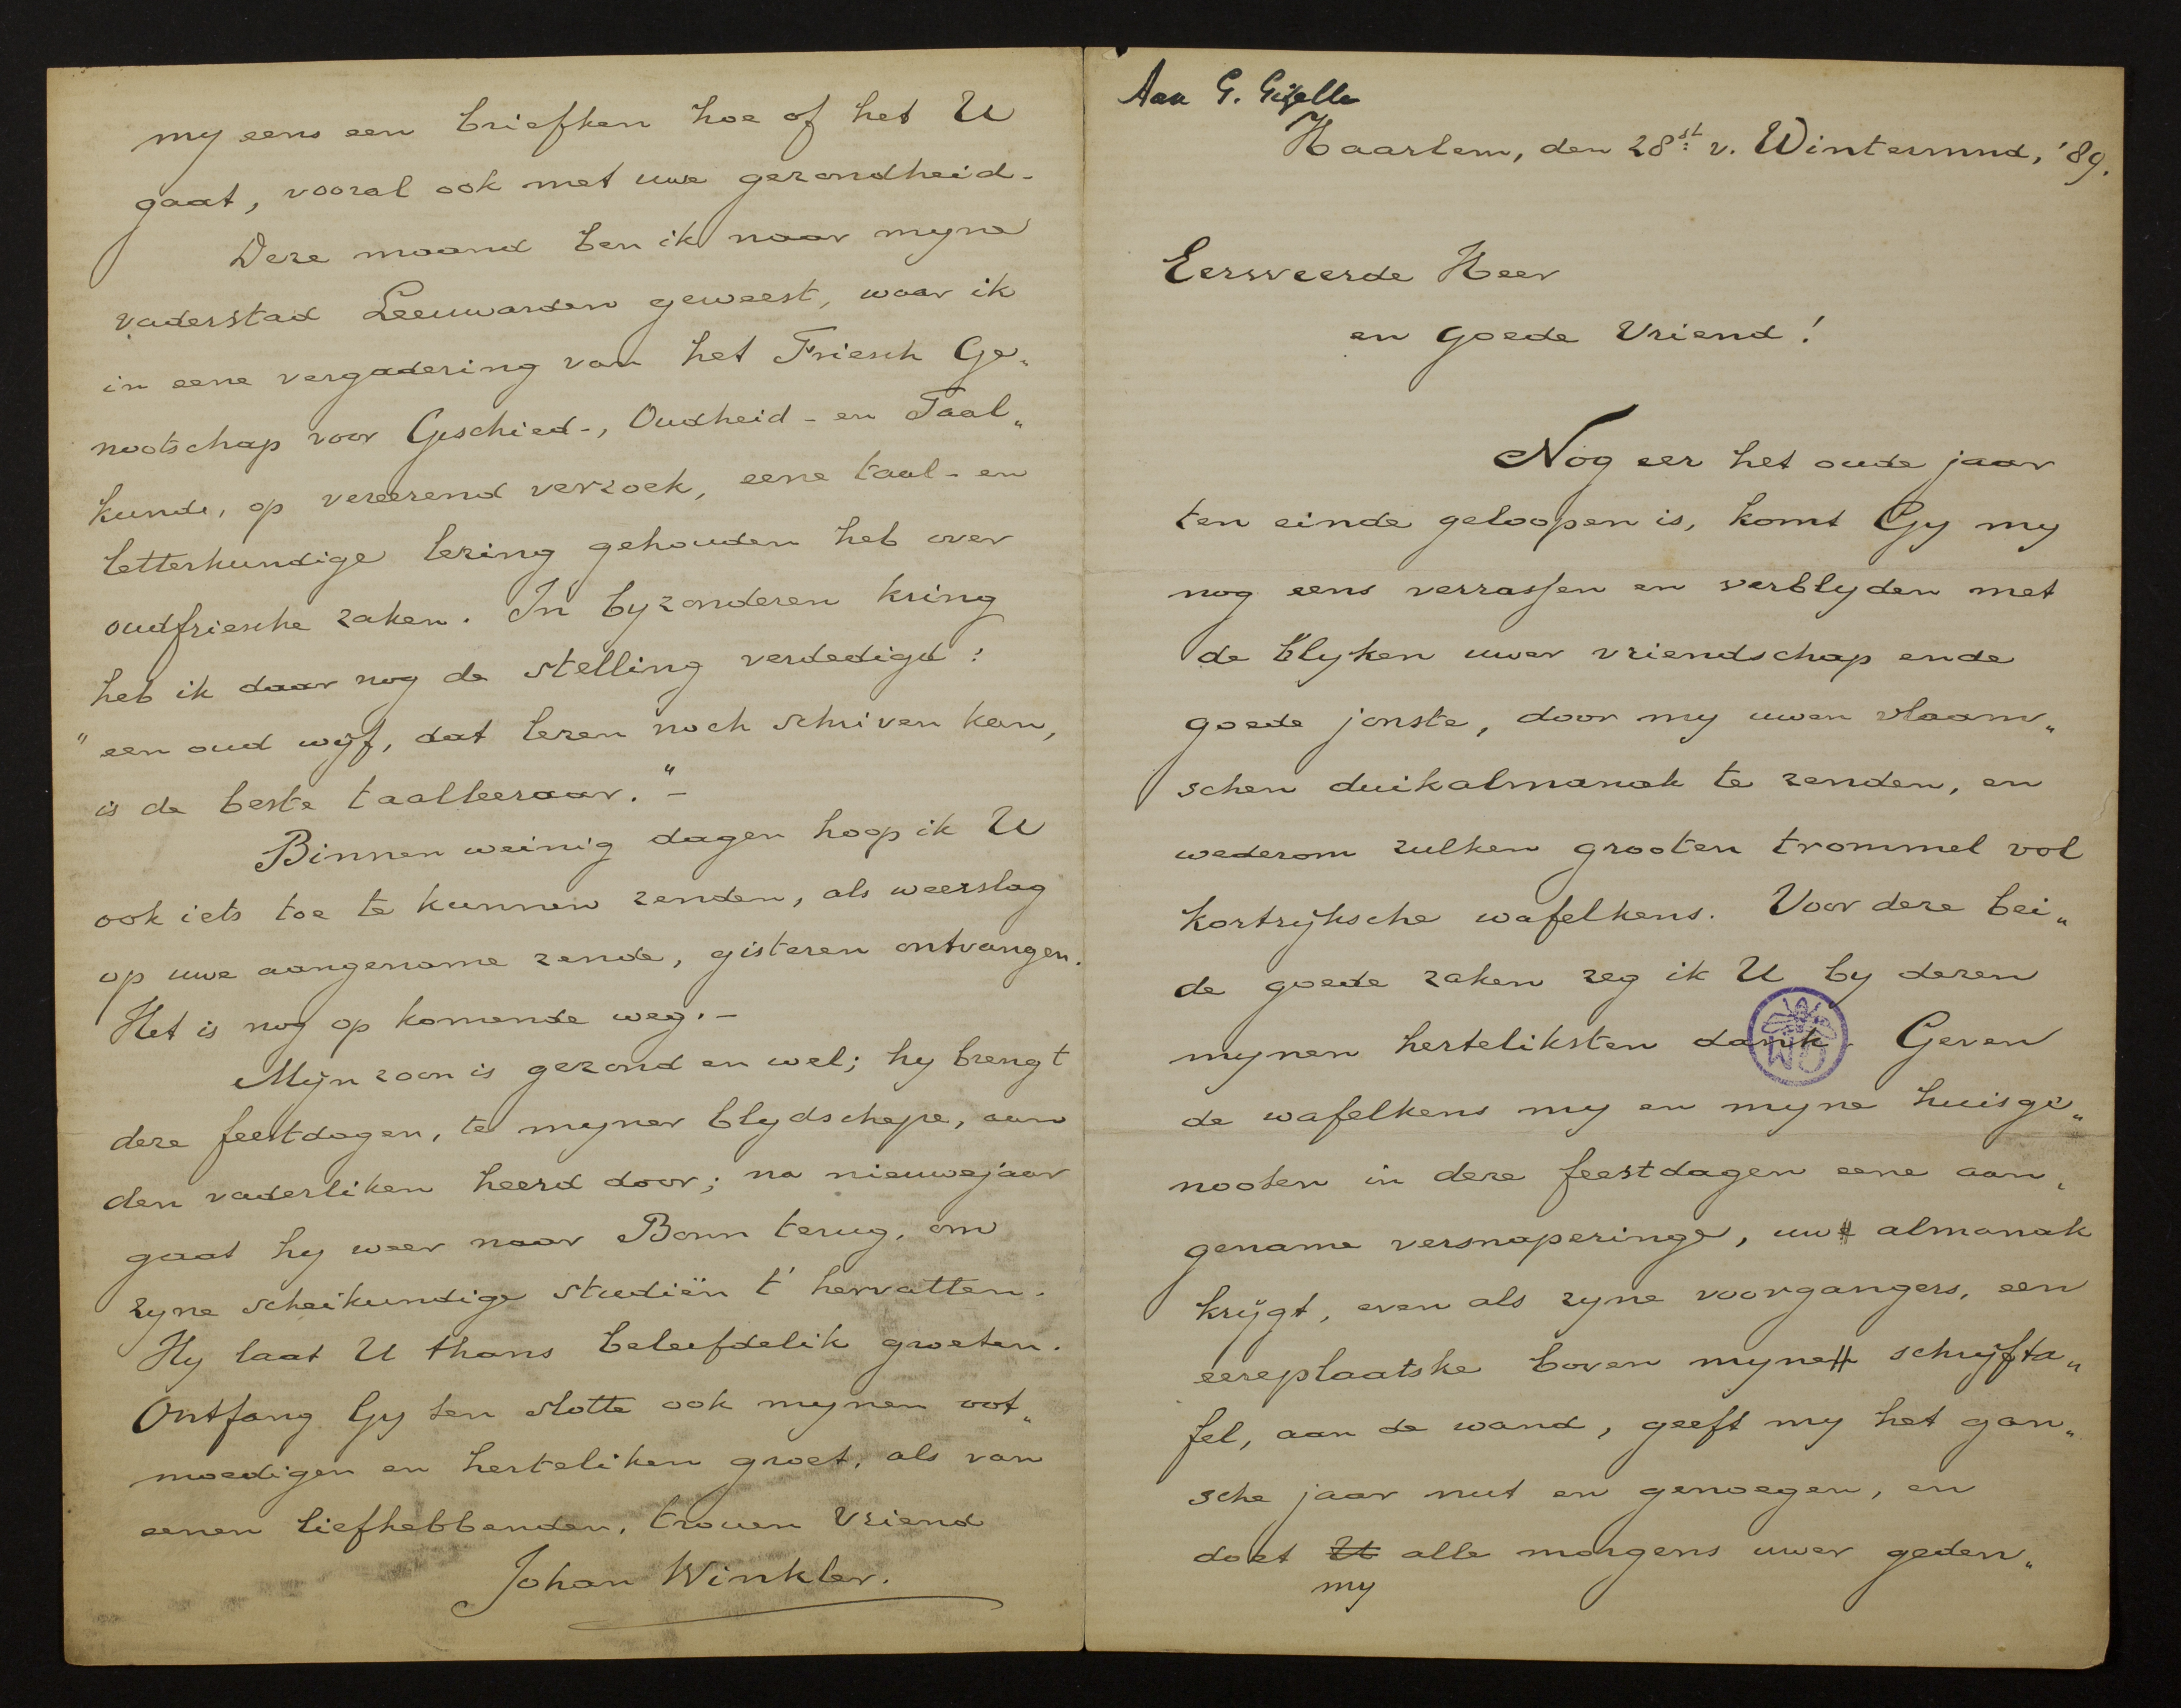 Aan G. Gezelle
Haarlem, den 28st v. Wintermnd, '89.
Eerweerde Heer
en goede Vriend!
Nog eer het oude jaar
ten einde geloopen is, komt Gy my
nog eens verrassen en verblyden met
de blyken uwer vriendschap ende
goede jonste, door my uwen vlaam„
schen duikalmanak te zenden, en
wederom zulken grooten trommel vol
kortrijksche wafelkens. Voor deze bei„
de goede zaken zeg ik U by dezen
mynen herteliksten dank. Geven
de wafelkens my en myne huisge„
nooten in deze feestdagen eene aan„
gename versnaperinge, uw almanak
krijgt, even als zyne voorgangers, een
eereplaatske boven myne schryfta„
fel, aan de wand, geeft my het gan„
sche jaar nut en genoegen, en
doet U alle morgens uwer geden„
my
my eens een briefken hoe of het U
gaat, vooral ook met uwe gezondheid.
Deze maand ben ik naar myne
vaderstad Leeuwarden geweest, waar ik
in eene vergadering van het Friesch Ge„
nootschap voor Geschied-, Oudheid- en Taal„
kunde, op vereerend verzoek, eene taal- en
letterkundige lezing gehouden heb over
oudfriesche zaken. In byzonderen kring
heb ik daar nog de stelling verdedigd:
"een oud wijf, dat lezen noch schriven kan,
is de beste taalleeraar." -
Binnen weinig dagen hoop ik U
ook iets toe te kunnen zenden, als weerslag
op uwe aangename zende, gisteren ontvangen.
Het is nog op komende weg. -
Mijn zoon is gezond en wel; hy brengt
deze feestdagen, te myner blydschepe, aan
den vaderliken heerd door; na nieuwejaar
gaat hy weer naar Bonn terug, om
zyne scheikundige studiën t' hervatten.
Hy laat U thans beleefdelik groeten.
Ontfang Gy ten slotte ook mynen oot„
moedigen en herteliken groet, als van
eenen liefhebbenden, trouen Vriend
Johan Winkler.